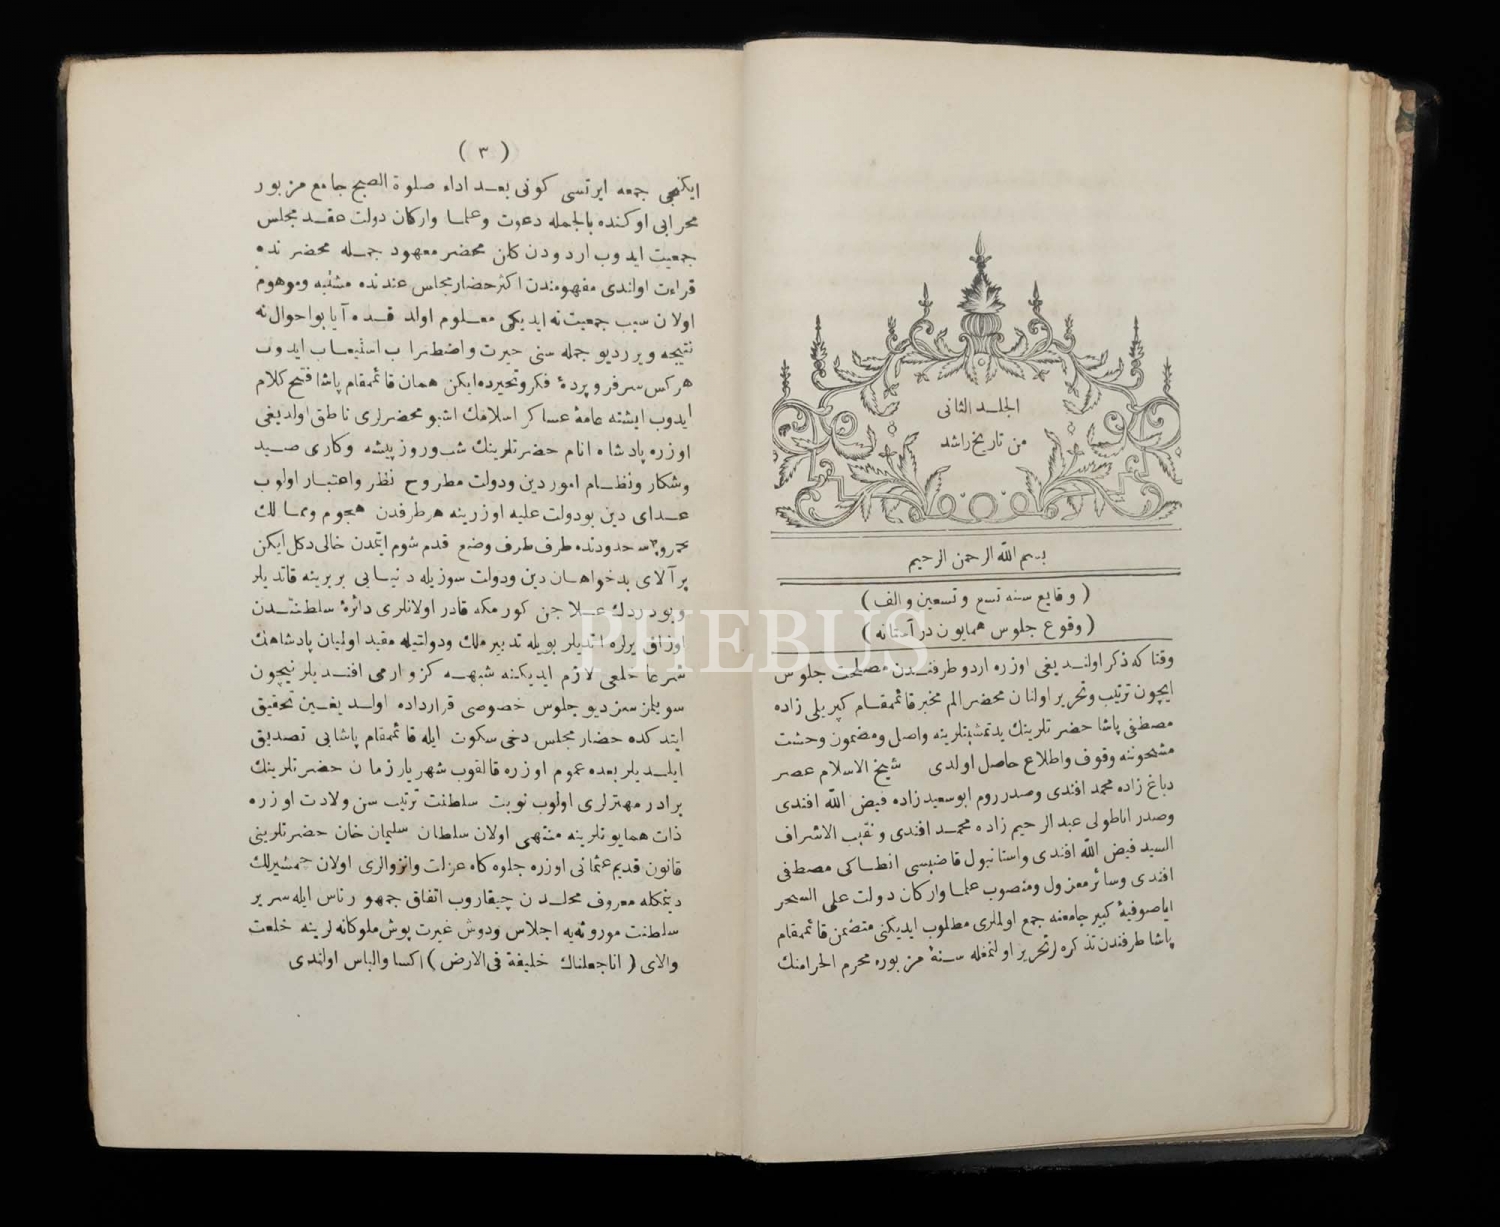 الجلد الثانى
من تاريخ راشد
بسم الله الرحمن الرحيم
( وقايع سنه تسع وتسعين والف )
( وقوع جلوس همايون در آستانه )
وقتاكه ذكر اولنديغى اوزره اردو طرفندن مصلحت جلوس
ايچون ترتيب وتحرير اولنان محضر الم مخبر قائممقام كپريلى زاده
مصطفى پاشا حضرتلرينك يدتمشيتلرينه واصل ومضمون وحشت
مشحوننه وقوف واطلاع حاصل اولدى شيخ الاسلام عصر
دباغ زاده محمد افندى وصدر روم ابوسعيد زاده فيض الله افندى
وصدر اناطولى عبد الرحيم زاده محمد افندى ونقيب الاشراف
السيد فيض الله افندى واستانبول قاضيسى انطاكى مصطفى
افندى وسائر معزول ومنصوب علما واركان دولت على السحر
اياصوفيۀ كبير جامعنه جمع اولملرى مطلوب ايديكنى متضمن قائممقام
پاشا طرفندن تذكره لر تحرير اولنمغله سنۀ مزبوره محرم الحرامنك
( ٣ )
ايكنجى جمعه ايرتسى كونى بعد اداء صلوة الصبح جامع مزبور
محرابى اوكنده بالجمله دعوت وعلما واركان دولت عقد مجلس
جمعيت ايدوب اردودن كلن محضر معهود جمله محضرنده
قراءت اولندى مفهومندن اكثر حضار مجلس عندنده مشتبه وموهوم
اولان سبب جمعيت نه ايديكى معلوم اولدقده آيا بو احوال نه
نتيجه ويرر ديو جمله سنى حيرت واضطراب استيعاب ايدوب
هركس سرفرو پردۀ فكر وتحيرده ايكن همان قائممقام پاشا فتح كلام
ايدوب ايشته عامۀ عساكر اسلامك اشبو محضرلرى ناطق اولديغى
اوزره پادشاه انام حضرتلرينك شب وروز پيشه وكارى صيد
وشكار ونظام امور دين ودولت مطروح نظر واعتبار اولوب
عداى دين بو دولت عليه اوزرينه هر طرفدن هجوم وممالك
محروسه حدودنده طرف طرف وضع قدم شوم ايتمدن خالى دكل ايكن
بر آلاى بدخواهان دين ودولت سوزيله دنيايى بربرينه قاتديلر
وبو دردك علاجن كورمكه قادر اولانلرى دائرۀ سلطنتدن
اوزاق يرلره اتديلر بويله تدبير ملك ودولتيله مقيد اولميان پادشاهك
شرعا خلعى لازم ايديكنه شبهه كز وارمى افنديلر نيچون
سويلمزسز ديو جلوس خصوصى قرارداده اولديغين تحقيق
ايتدكده حضار مجلس دخى سكوت ايله قائممقام پاشايى تصديق
ايلديلر بعده عموم اوزره قالقوب شهريار زمان حضرتلرينك
برادر مهترلرى اولوب نوبت سلطنت ترتيب سن ولادت اوزره
ذات همايونلرينه منتهى اولان سلطان سليمان خان حضرتلرينى
قانون قديم عثمانى اوزره جلوه كاه عزلت وانزوالرى اولان جمشيرلك
ديمكله معروف محلدن چيقاروب اتفاق جمهور ناس ايله سرير
سلطنت موروثه يه اجلاس ودوش غيرت پوش ملوكانه لرينه خلعت
والاى ( انا جعلناك خليفة فى الارض ) اكسا والباس اولندى
PHEBUS